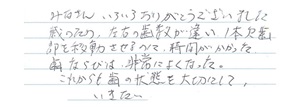 みなさん いろいろありがとうございました
残ったり、左右の歯数が違い 1本欠歯
部を移動させるので、時間がかかった
歯ならびは、非常によくなった。
これからも歯の状態を大切にして、
いきたい